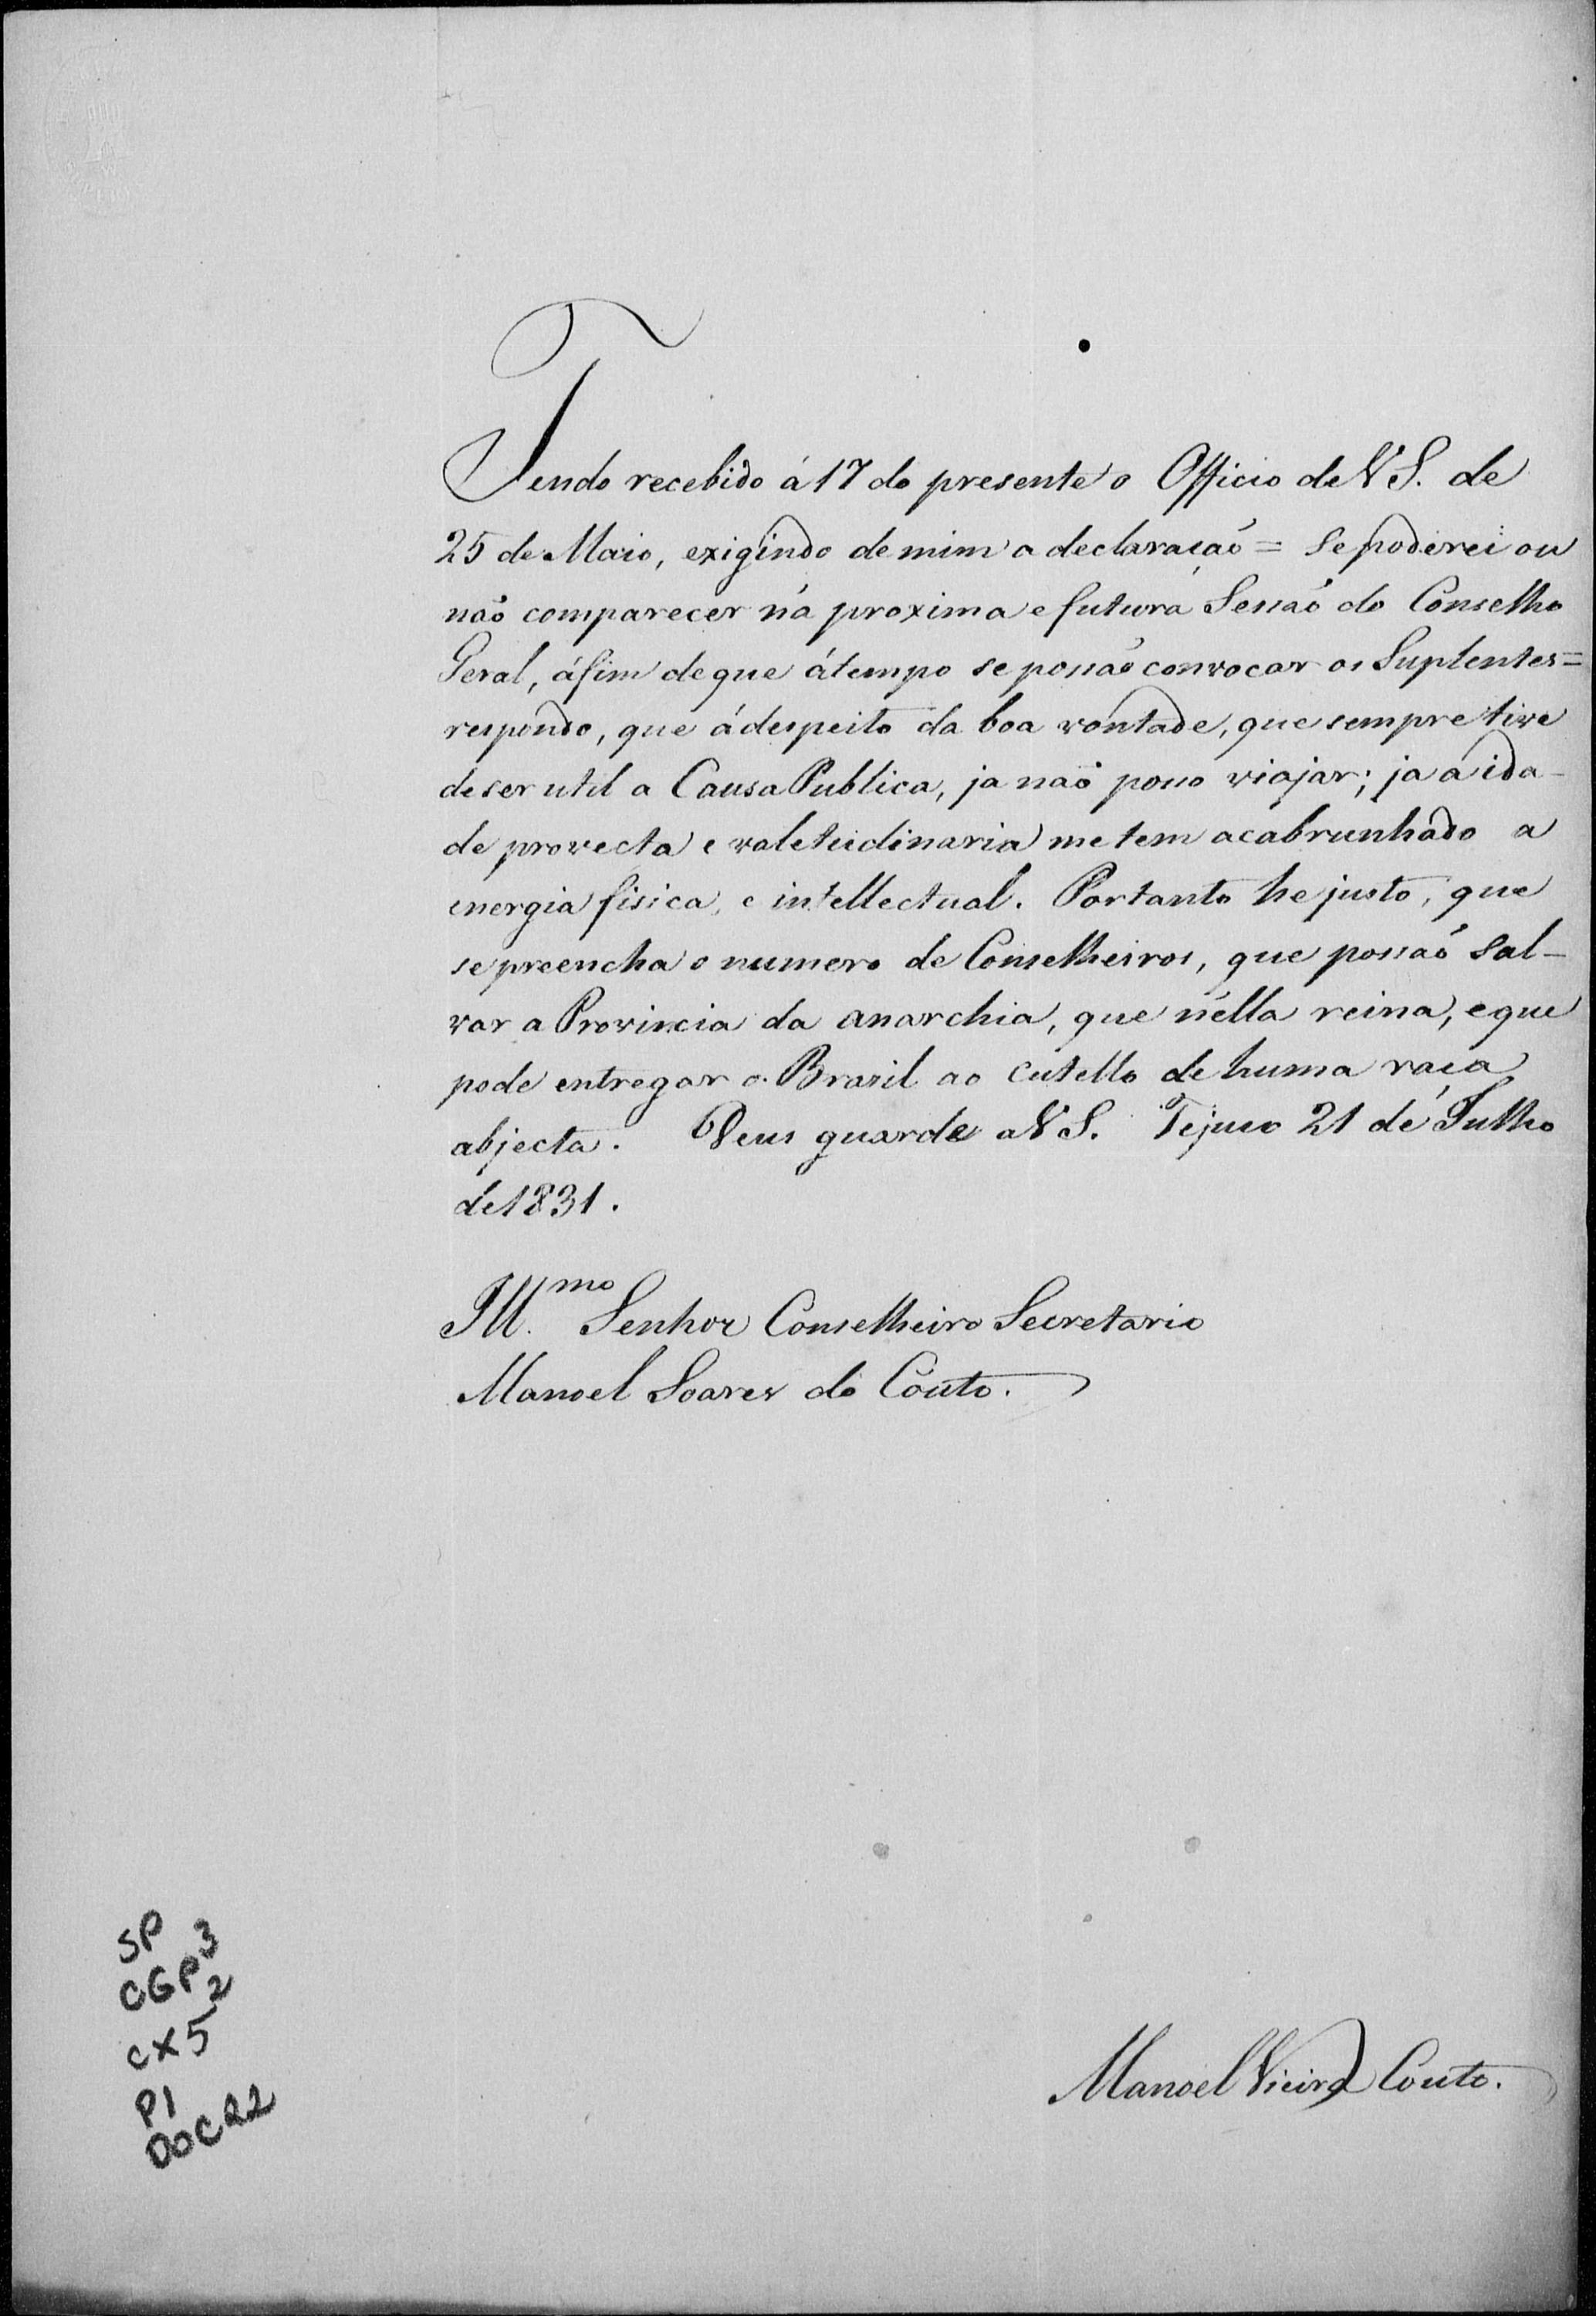 Tendo recebido á 17 do presente o Officio de V S. de
25 de Maio, exigindo de mim a declaração = Se poderei ou
não comparecer na proxima e futura Sessão do Conselho
Geral, áfim de que á tempo se possão convocar os Suplentes =
respondo, que á despeito da boa vontade, que sempre tive
de ser util a Causa Publica, ja não posso viajar; ja a ida-
de provecta e valetudinaria me tem acabrunhado a
energia fisica, e intellectual. Portanto he justo, que
se preencha o numero de Conselheiros, que possão sal-
var a Provincia da anarchia, que nella reina, e que
pode entregar o Brasil ao Cutello de huma raça
abjecta. Deus guarde a V S. Tejuco 21 de Julho
de 1831.
Ill.mo Senhor Conselheiro Secretario
Manoel Soares do Couto.
Manoel Vieira Couto.
SP
CGP 3
2
CX 5
P1
DOC 22